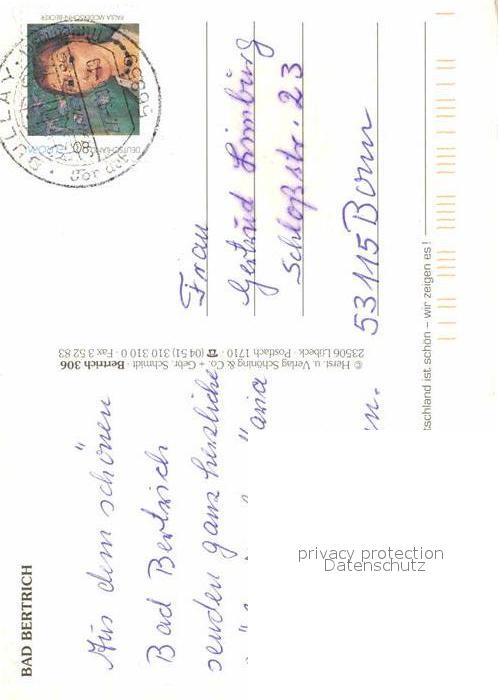 BAD BERTRICH
Aus dem schönen
Bad Bertrich
senden ganz herzliche
© Herst. u. Verlag Schöning & Co. + Gebr. Schmidt · Bertrich 306
23506 Lübeck · Postfach 1710 · ☎ (04 51) 310 310 0 · Fax 3 52 83
Frau
Gertrud Limburg
Schloßstr. 23
53115 Bonn
tschland ist schön – wir zeigen es!
PAULA MODERSOHN-BECKER
80
EUROPA
BULLAY
privacy protection
Datenschutz